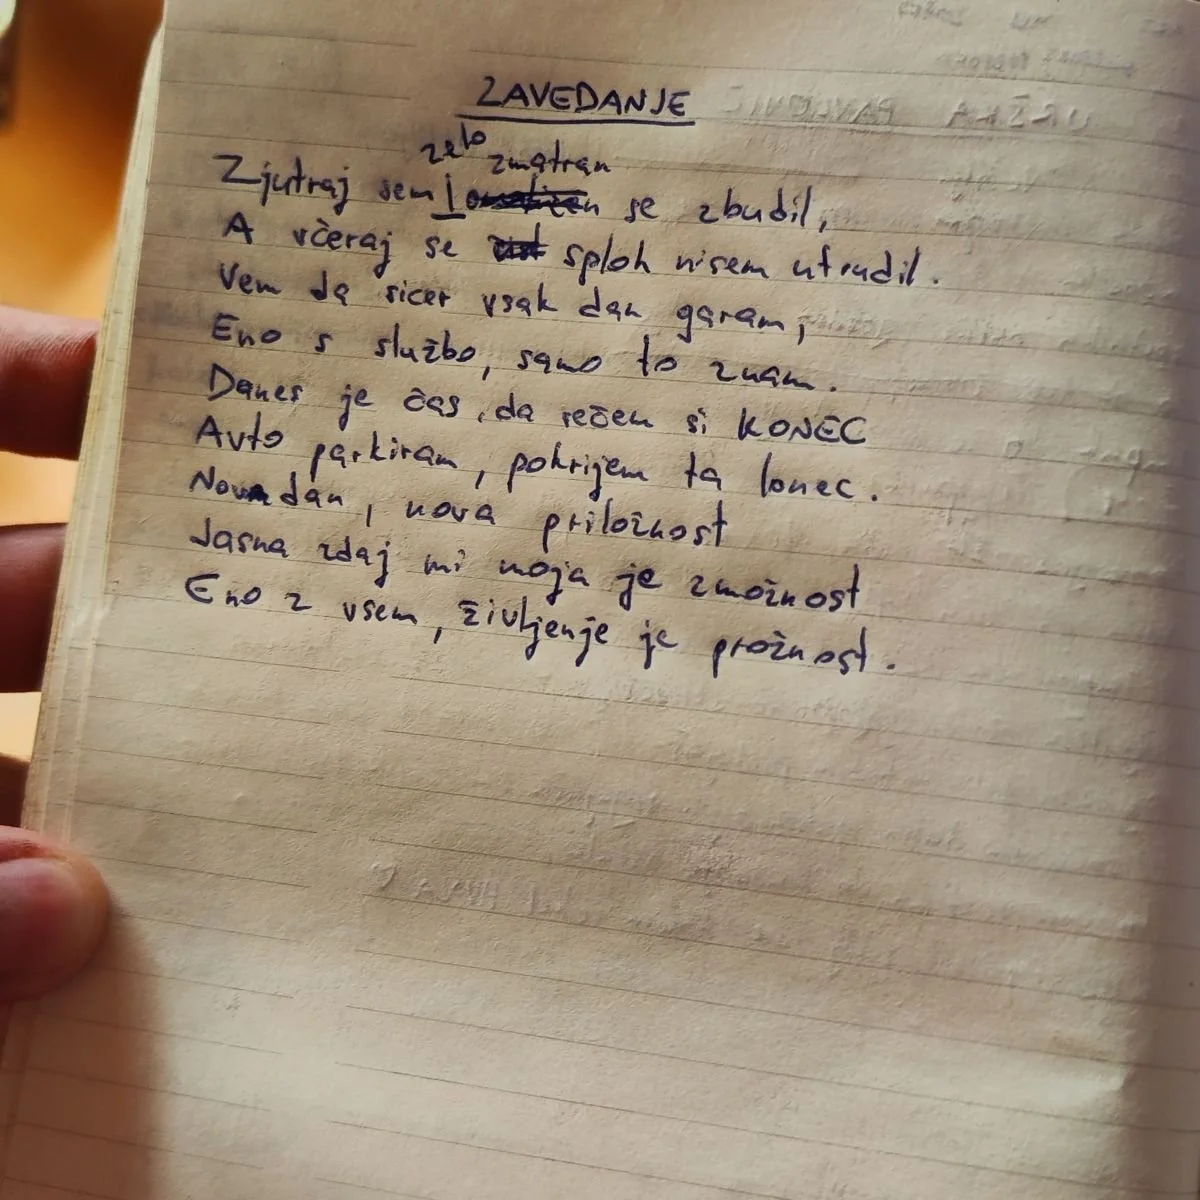 ZAVEDANJE
zelo zmatran
Zjutraj sem se zbudil,
A včeraj se sploh nisem utrudil.
Vem da sicer vsak dan garam,
Eno s službo, samo to znam.
Danes je čas, da rečem si KONEC
Avto parkiram, pokrijem ta lonec.
Nov dan, nova priložnost
Jasna zdaj mi moja je zmožnost
Eno z vsem, življenje je prožnost.